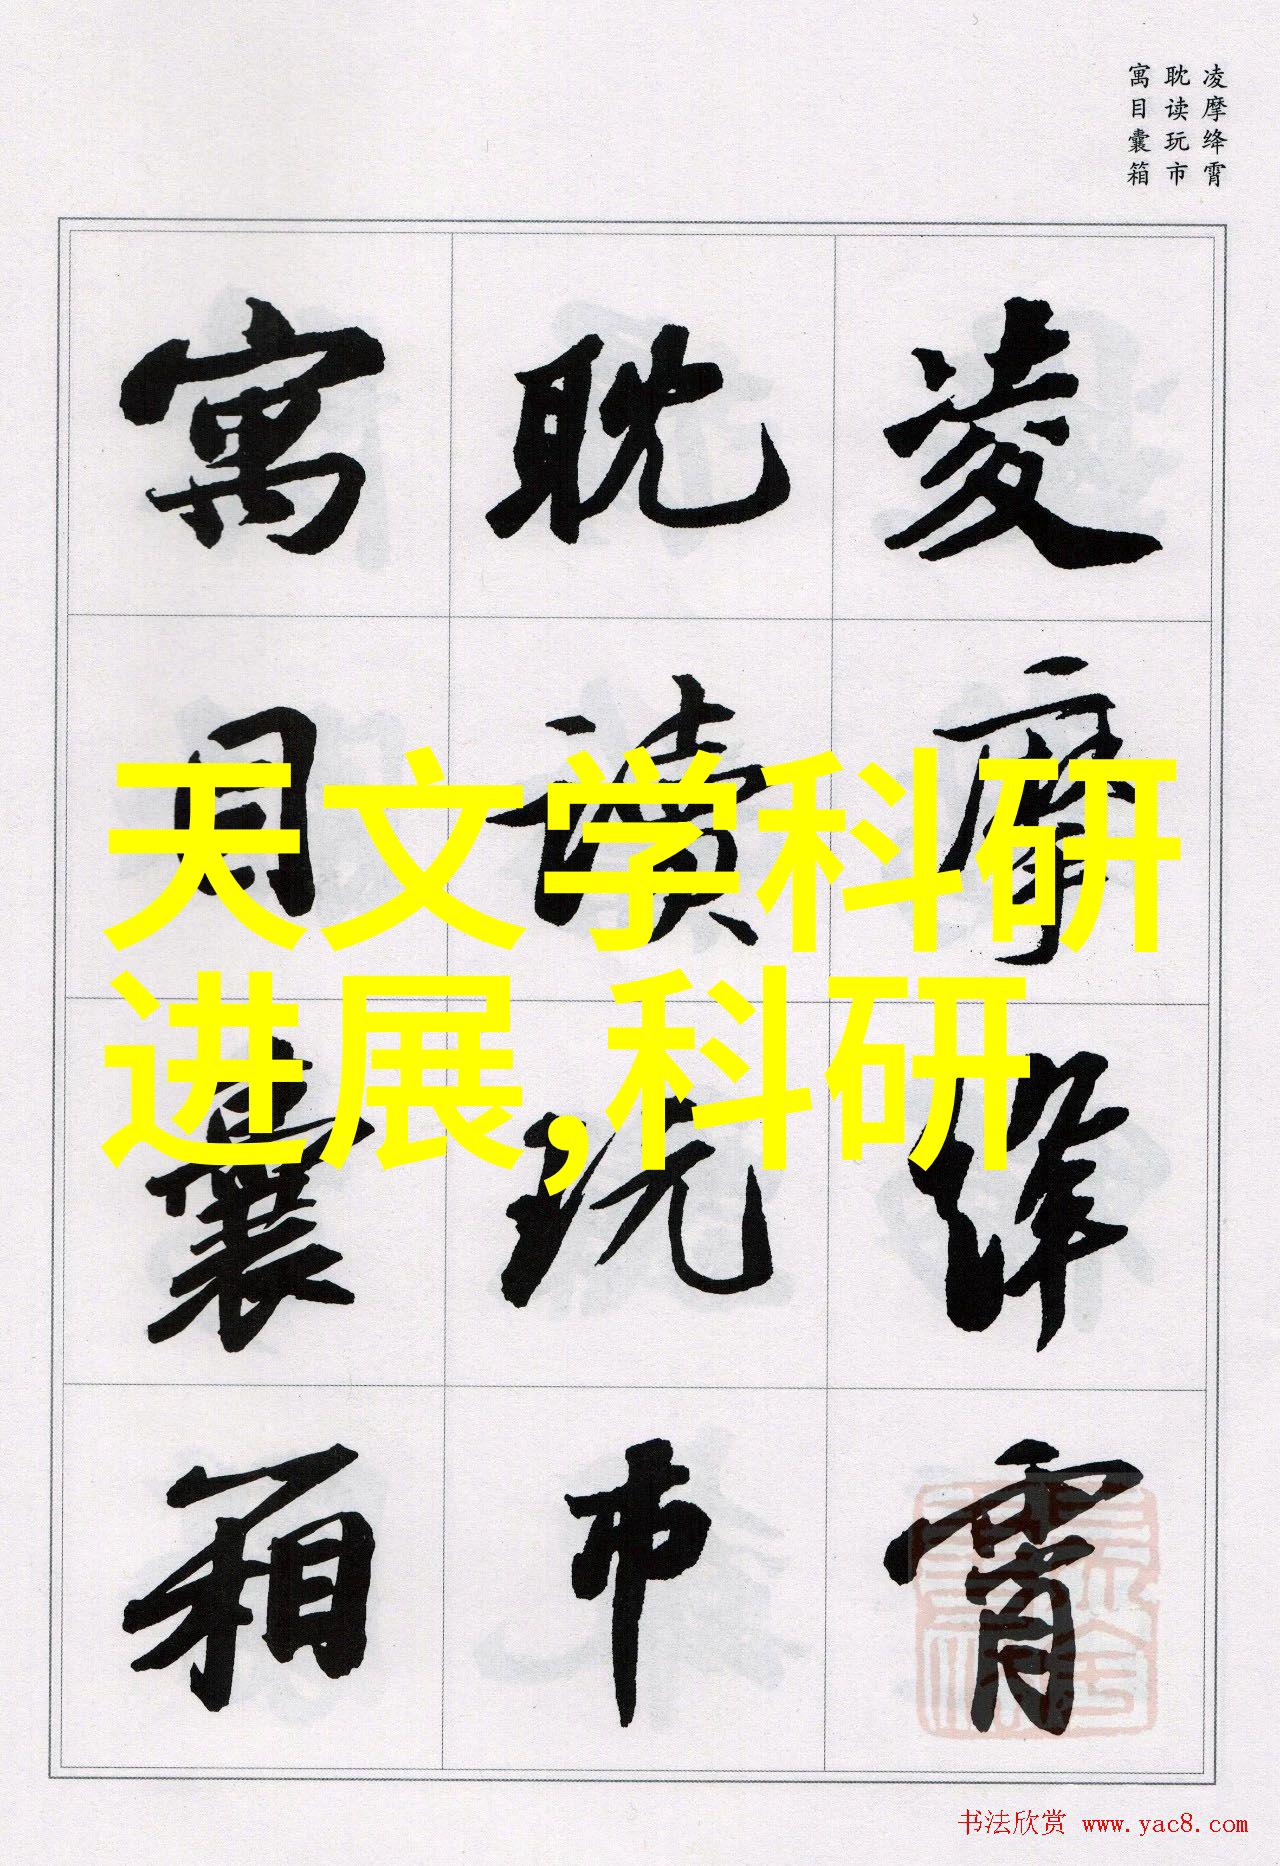 凌摩绛霄
耽读玩市
寓目囊箱
凌摩绛霄
耽读玩市
寓目囊箱
天文学科研
进展,科研
书法欣赏 www.yac8.com